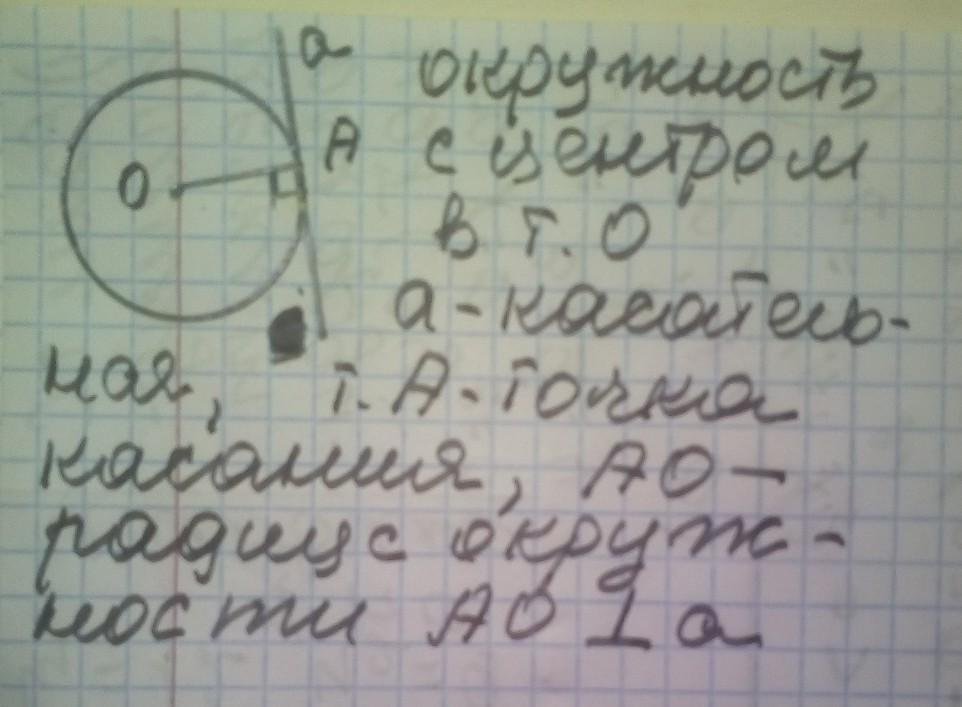 a
окружность
A с центром
O
в т. O
a - касатель-
ная, т. A - точка
касания, AO -
радиус окруж-
ности AO ⊥ a